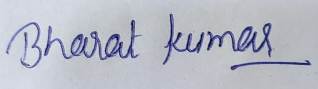 Bharat kumar